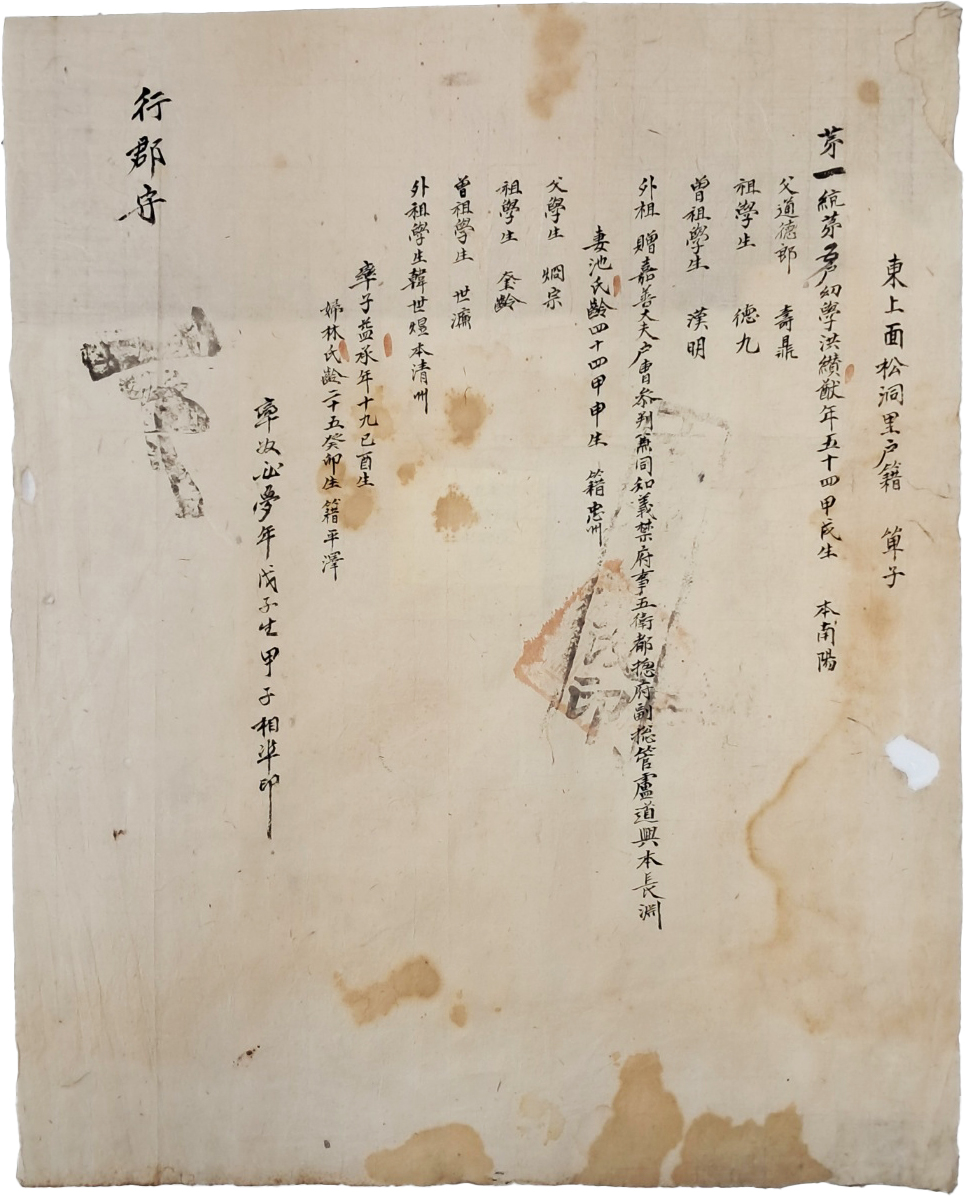 東上面松洞里戶籍 單子
第一統第五戶幼學洪纘猷年五十四甲戌生 本南陽
父通德郎 壽鼎
祖學生 德九
曾祖學生 漢明
外祖 贈嘉善大夫戶曹參判兼同知義禁府事五衛都摠府副摠管盧道興本長淵
妻池氏齡四十四甲申生 籍忠州
父學生 烱宗
祖學生 奎齡
曾祖學生 世濂
外祖學生韓世煜本淸州
率子益承年十九己酉生
婦林氏齡二十五癸卯生 籍平澤
率奴 夢年戊子生甲子相準印
行郡守